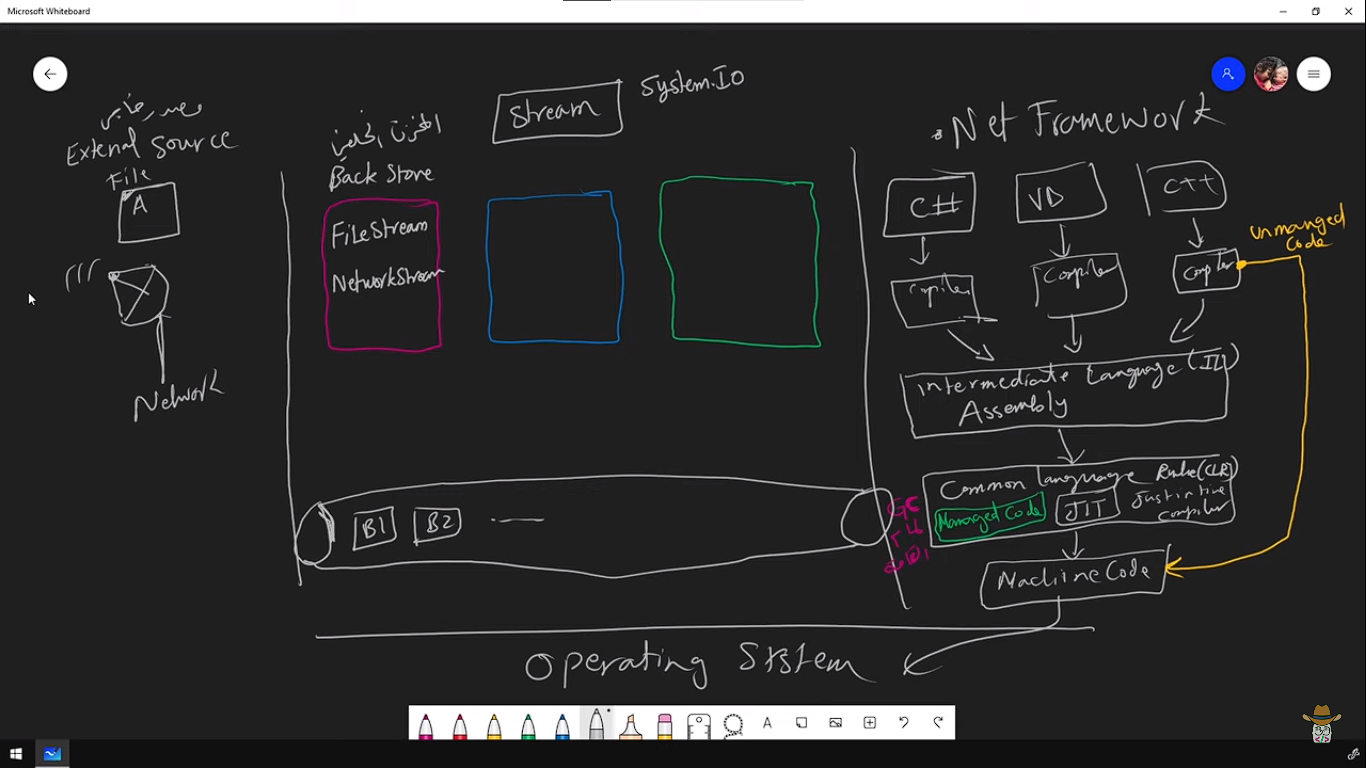 Microsoft Whiteboard
Stream
System.IO
مصدر خارجي
Extenal Source
File
A
Network
المخزن الخلفي
Back Store
FileStream
NetworkStream
B1
B2
.Net Framework
C#
VB
C++
Compiler
Compiler
Compiler
unmanged
Code
Intermediate Language (IL)
Assembly
Common Language (CLR)
Managed Code
JIT
Just in time
compiler
GC
Machine Code
Operating System
A